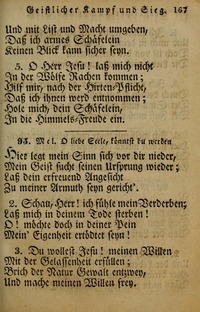 Geistlicher Kampf und Sieg. 167
Und mit List und Macht umgeben,
Daß ich armes Schäfelein
Keinen Blick kann sicher seyn.
5. O Herr Jesu! laß mich nicht
In der Wölfe Rachen kommen;
Hilf mir, nach der Hirten-Pflicht,
Daß ich ihnen werd entnommen;
Hole mich, dein Schäfelein,
In die Himmels-Freude ein.
95. Mel. O liebe Seele, könntst du werden
Hier legt mein Sinn sich vor dir nieder,
Mein Geist sucht seinen Ursprung wieder;
Laß dein erfreuend Angesicht
Zu meiner Armuth seyn gericht'.
2. Schau, Herr! ich fühle mein Verderben;
Laß mich in deinem Tode sterben!
O! möchte doch in deiner Pein
Mein' Eigenheit ertödtet seyn!
3. Du wollest Jesu! meinen Willen
Mit der Gelassenheit erfüllen;
Brich der Natur Gewalt entzwey,
Und mache meinen Willen frey.